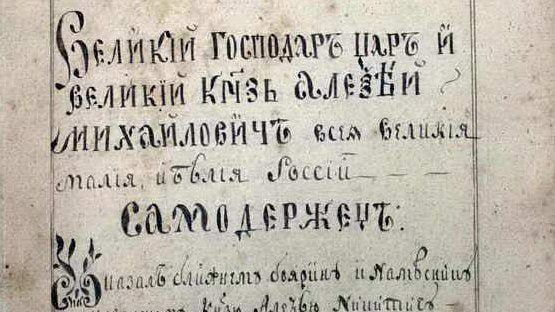 Великій Господарь царь и
великій кнѧзь Алеѯѣй
михайловичъ всея великія
малія, и бѣлія Россіи
самодержецъ:
Указалъ ближнемъ бояринъ и Намѣсникъ
кнзю Алеѯѣю Никитич